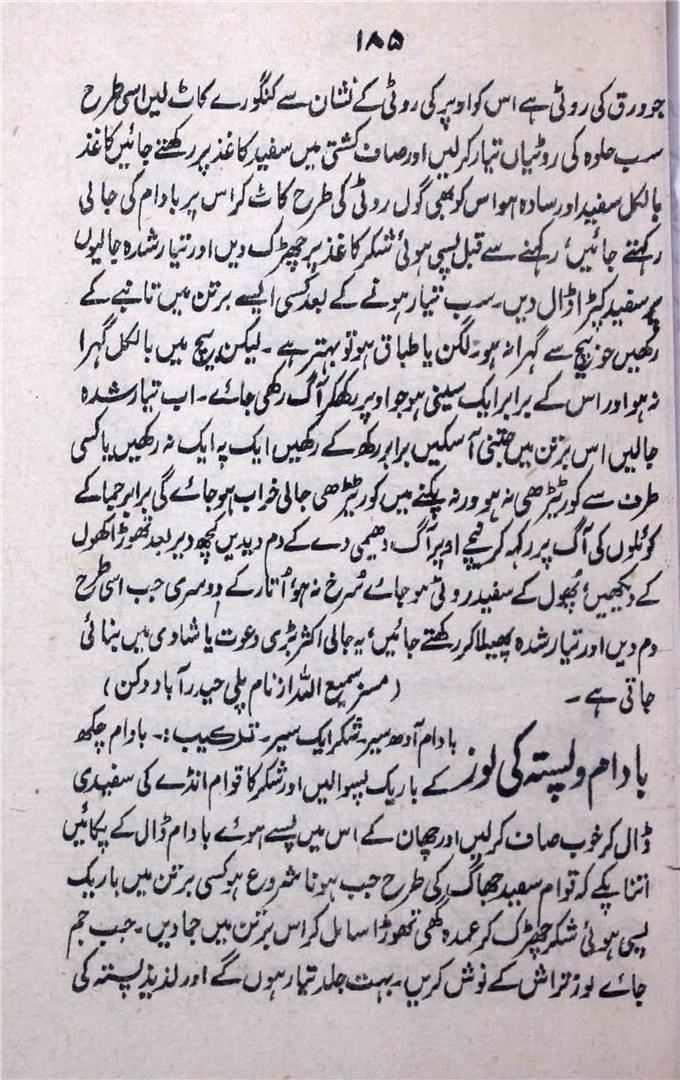 ۱۸۵
جو ورق کی روٹی ہے اس کو اوپر کی روٹی کے نشان سے کنگورے کاٹ لیں اسی طرح
سب حلوہ کی روٹیاں تیار کر لیں اور صاف کشتی میں سفید کاغذ پر رکھتے جائیں کاغذ
بالکل سفید اور سادہ ہو اس کو بھی گول روٹی کی طرح کاٹ کر اس پر بادام کی جالی
رکھتے جائیں، رکھنے سے قبل پسی ہوئی شکر کاغذ پر چھڑک دیں اور تیار شدہ جالیوں
پر سفید کپڑا ڈال دیں۔ سب تیار ہونے کے بعد کسی ایسے برتن میں تانبے کے
رکھیں جو بیچ سے گہرا نہ ہو۔ لگن یا طباق ہو تو بہتر ہے۔ لیکن بیچ میں بالکل گہرا
نہ ہو اور اس کے برابر ایک سینی ہو جو اوپر رکھکر آگ رکھی جائے۔ اب تیار شدہ
جالیں اس برتن میں جتنی آ سکیں برابر رکھ کے رکھیں ایک پہ ایک نہ رکھیں یا کسی
طرف سے کور ٹیڑھی نہ ہو ورنہ پکنے میں کور ٹیڑھی جالی خواب ہو جائے گی برابر جما کے
کوئلوں کی آگ پر رکہہ کر نیچے اوپر آگ دھیمی دے کے دم دیدیں کچھ دیر بعد تھوڑا کھول
کے دیکھیں، پھول کے سفید روٹی ہو جائے سُرخ نہ ہو اُتار کے دوسری جب اسی طرح
دم دیں اور تیار شدہ پھیلا کر رکھتے جائیں، یہ جالی اکثر بڑی دعوت یا شادی میں بنائی
جاتی ہے۔ (مسز سمیع اللہ از نام پلی حیدرآباد دکن)
بادام و پستہ کی لوز
بادام آدھ سیر۔ شکر ایک سیر۔ ترکیب:۔ بادام چکھ
کے باریک پسوالیں اور شکر کا قوام انڈے کی سفیدی
ڈال کر خوب صاف کر لیں اور چھان کے اس میں پسے ہوئے بادام ڈال کے پکائیں
اتنا پکے کہ قوام سفید جھاگ کی طرح جب ہونا شروع ہو کسی برتن میں باریک
پسی ہوئی شکر چھڑک کر عمدہ گھی تھوڑا سا مل کر اس برتن میں جما دیں۔ جب جم
جائے لوز تراش کے نوش کریں۔ بہت جلد تیار ہوں گے اور لذیذ پستہ کی